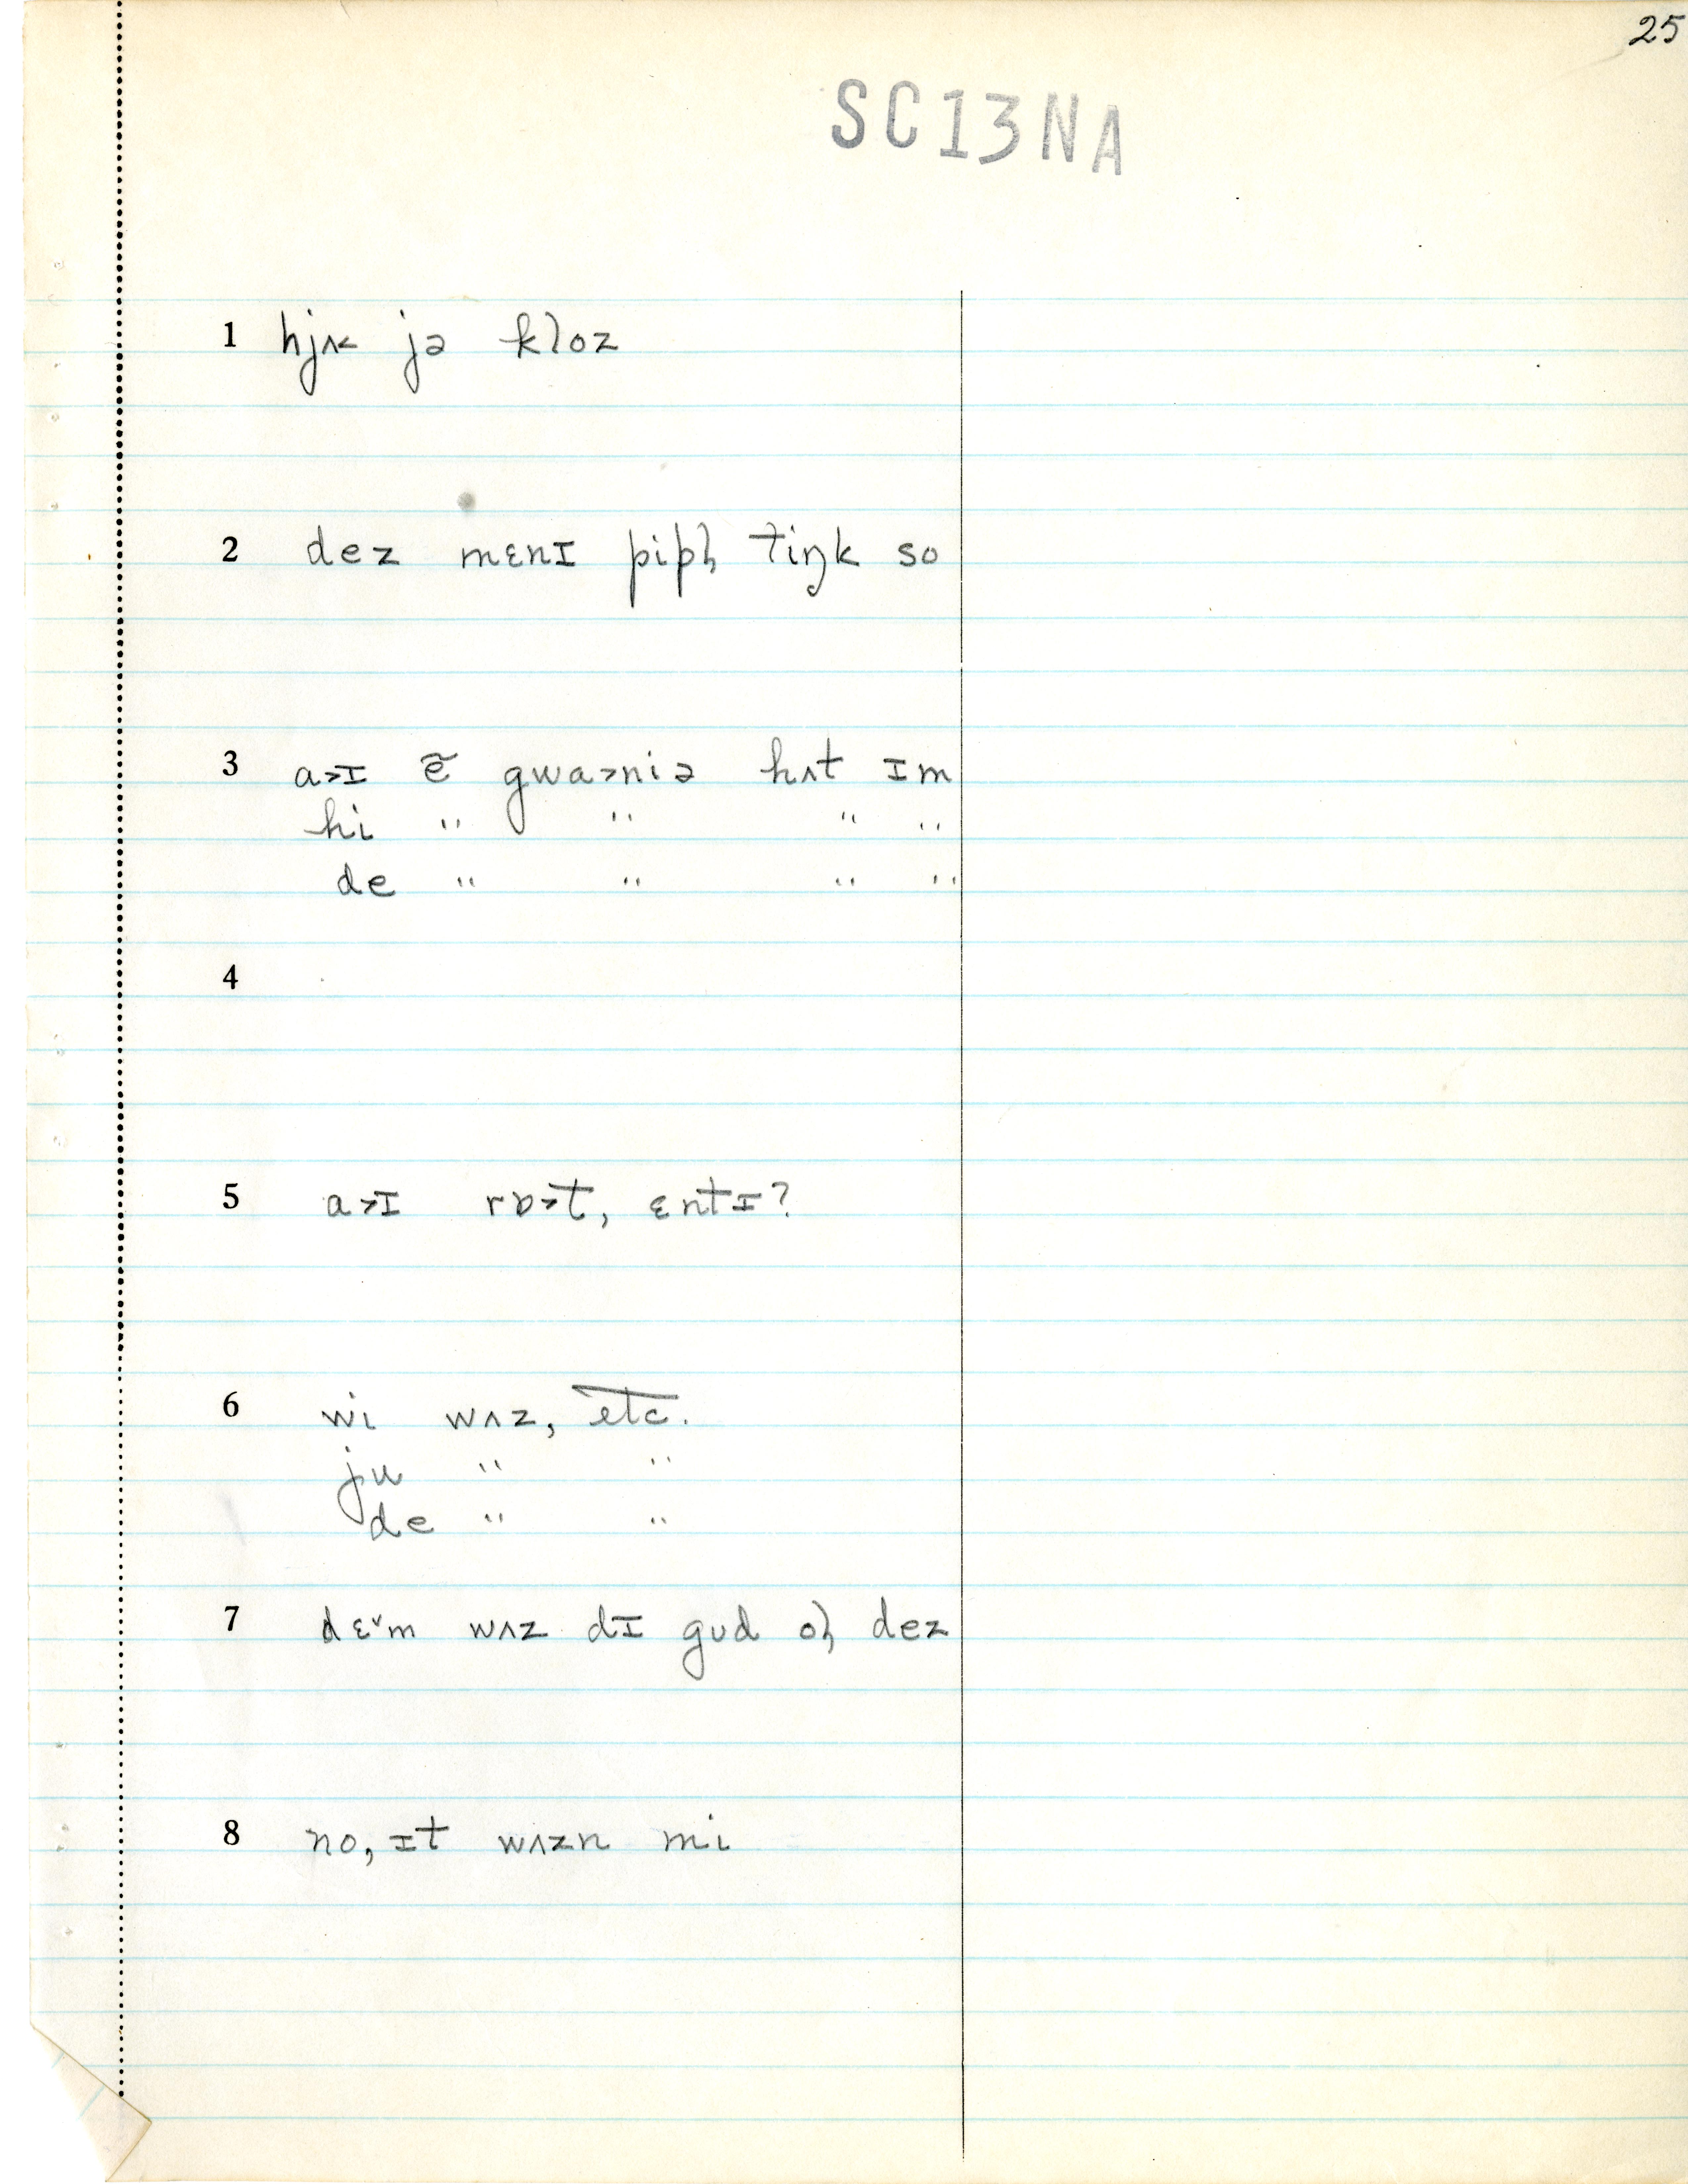 25
SC13NA
1 hjʌ< jə kloz
2 dez mɛnɪ pipl̩ tiŋk so
3 a>ɪ ẽ gwa>niə hʌt ɪm
hi " " " "
de " " " "
4
5 a>ɪ rɒ>t, ɛntɪ?
6 wi wʌz, etc.
ju " "
de " "
7 dɛ˅m wʌz dɪ gud ol̩ dez
8 no, ɪt wʌzn mi